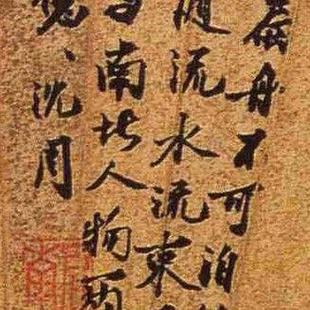 舟不可泊
隨流水流東
南北人物兩
沈周